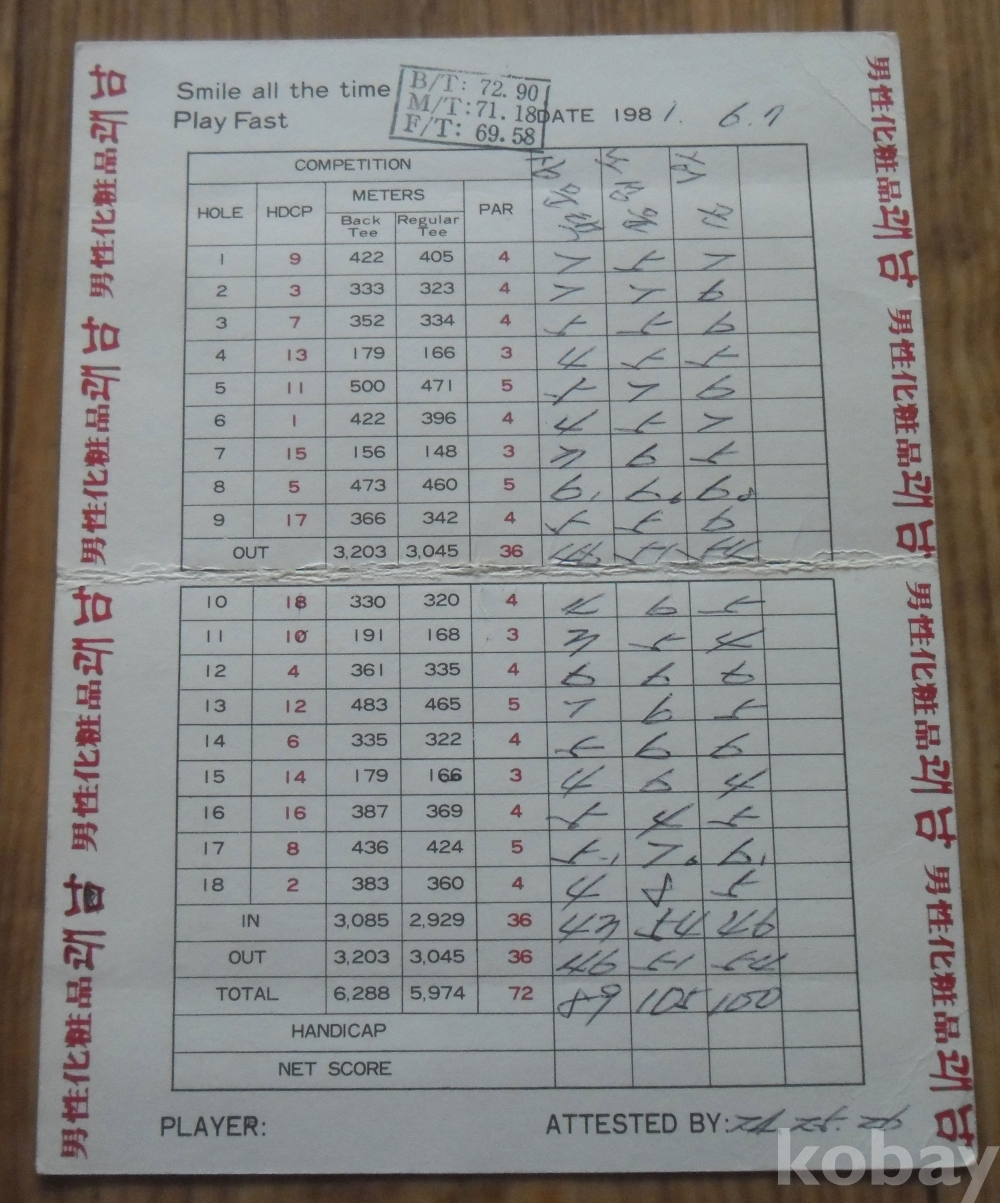 Smile all the time
Play Fast
B/T: 72.90
M/T: 71.18
F/T: 69.58
DATE 1981. 6. 7
COMPETITION
HOLE HDCP METERS PAR
Back Tee Regular Tee
1 9 422 405 4 7 5 7
2 3 333 323 4 7 7 6
3 7 352 334 4 5 5 6
4 13 179 166 3 4 5 5
5 11 500 471 5 5 7 6
6 1 422 396 4 4 5 7
7 15 156 148 3 3 6 5
8 5 473 460 5 6 6 6
9 17 366 342 4 5 5 6
OUT 3,203 3,045 36 46 51 54
10 18 330 320 4 4 6 5
11 10 191 168 3 3 5 4
12 4 361 335 4 6 6 6
13 12 483 465 5 7 6 5
14 6 335 322 4 5 6 6
15 14 179 166 3 4 6 4
16 16 387 369 4 5 4 5
17 8 436 424 5 5 7 6
18 2 383 360 4 4 8 5
IN 3,085 2,929 36 43 54 46
OUT 3,203 3,045 36 46 51 54
TOTAL 6,288 5,974 72 89 105 100
HANDICAP
NET SCORE
PLAYER:
ATTESTED BY:
男性化粧品 쾌남 男性化粧品 쾌남 男性化粧品 쾌남 男性化粧品 쾌남
男性化粧品 쾌남 男性化粧品 쾌남 男性化粧品 쾌남 男性化粧品 쾌남
kobay